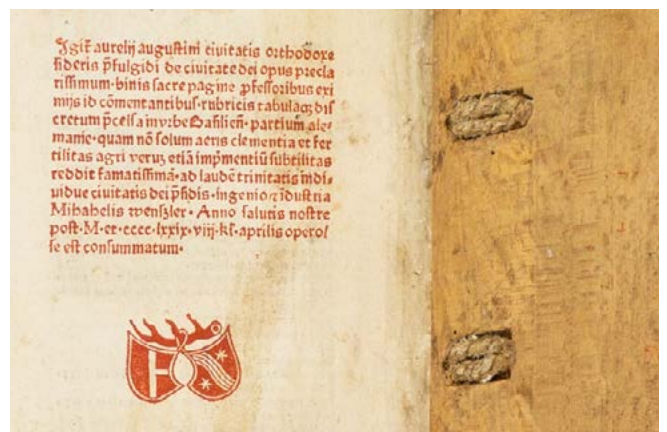 Igit̄ aurelij augustini ciuitatis orthodoxe
sideris p̄fulgidi de ciuitate dei opus precla
rissimum· binis sacre pagine ꝓfessoribus exi
mijs id cōmentantibus· rubricis tabulaqꝫ dis
cretum p̄celsa in vrbe Basilieñ· partium ale-
manie· quam nō solum aeris clementia et fer
tilitas agri veruꝫ etiā imp̄mentiū subtilitas
reddit famatissimā· ad laudē trinitatis indi-
uidue ciuitatis dei p̄sidis· ingenio ⁊ īdustria
Mihahelis wenszler· Anno salutis nostre
post· M· et· cccc· lxxix· viij· kl̄· aprilis operos
se est consummatum·